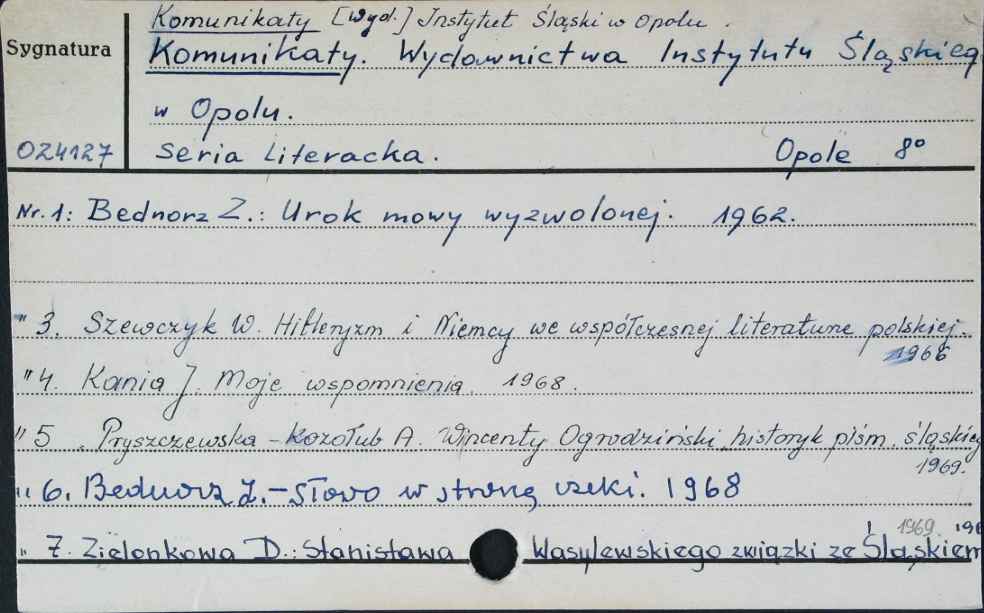 Komunikaty [Wyd.] Instytut Śląski w Opolu.
Sygnatura
Komunikaty. Wydawnictwa Instytutu Śląskieg
w Opolu.
OZ4127 Seria Literacka. Opole 8°
Nr. 1: Bednorz Z.: Urok mowy wyzwolonej. 1962.
" 3. Szewczyk W. Hitleryzm i Niemcy we współczesnej literaturze polskiej.
1966
" 4. Kania J. Moje wspomnienia. 1968.
" 5. Pryszczewska-Kozołub A. Wincenty Ogrodziński historyk piśm. śląskieg
1969.
" 6. Bednorz Z. - Słowo w stronę rzeki. 1968
1969. 196
" 7. Zielonkowa D.: Stanisława Wasylewskiego związki ze Śląskiem